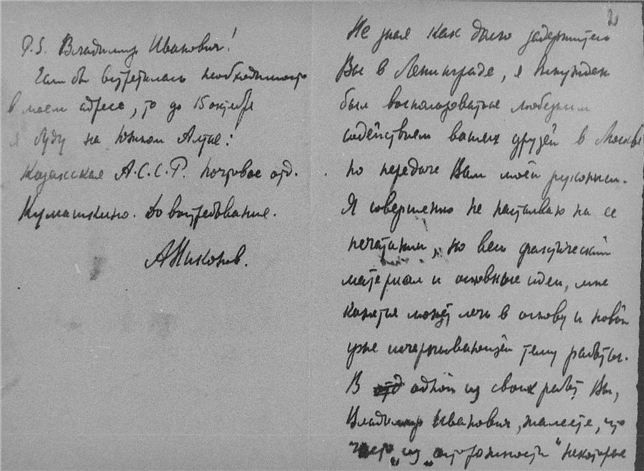 P.S. Владимир Иванович!
Если бы встретилась необходимость
в моем адресе, то до 15 октября
я буду на южном Алтае:
Казакская А.С.С.Р. почтовое отд.
Кумашкино. До востребования.
А Никонов.
2
Не зная как долго задержитесь
Вы в Ленинграде, я вынужден
был воспользоваться любезным
содействием ваших друзей в Москве
по передаче Вам моей рукописи.
Я совершенно не настаиваю на ее
печатании, но весь фактический
материал и основные идеи, мне
кажется может лечь в основу и новой
уже исчерпывающей тему работы.
В одной из своих работ Вы,
Владимир Иванович, жалеете, что
из „осторожности" некоторые